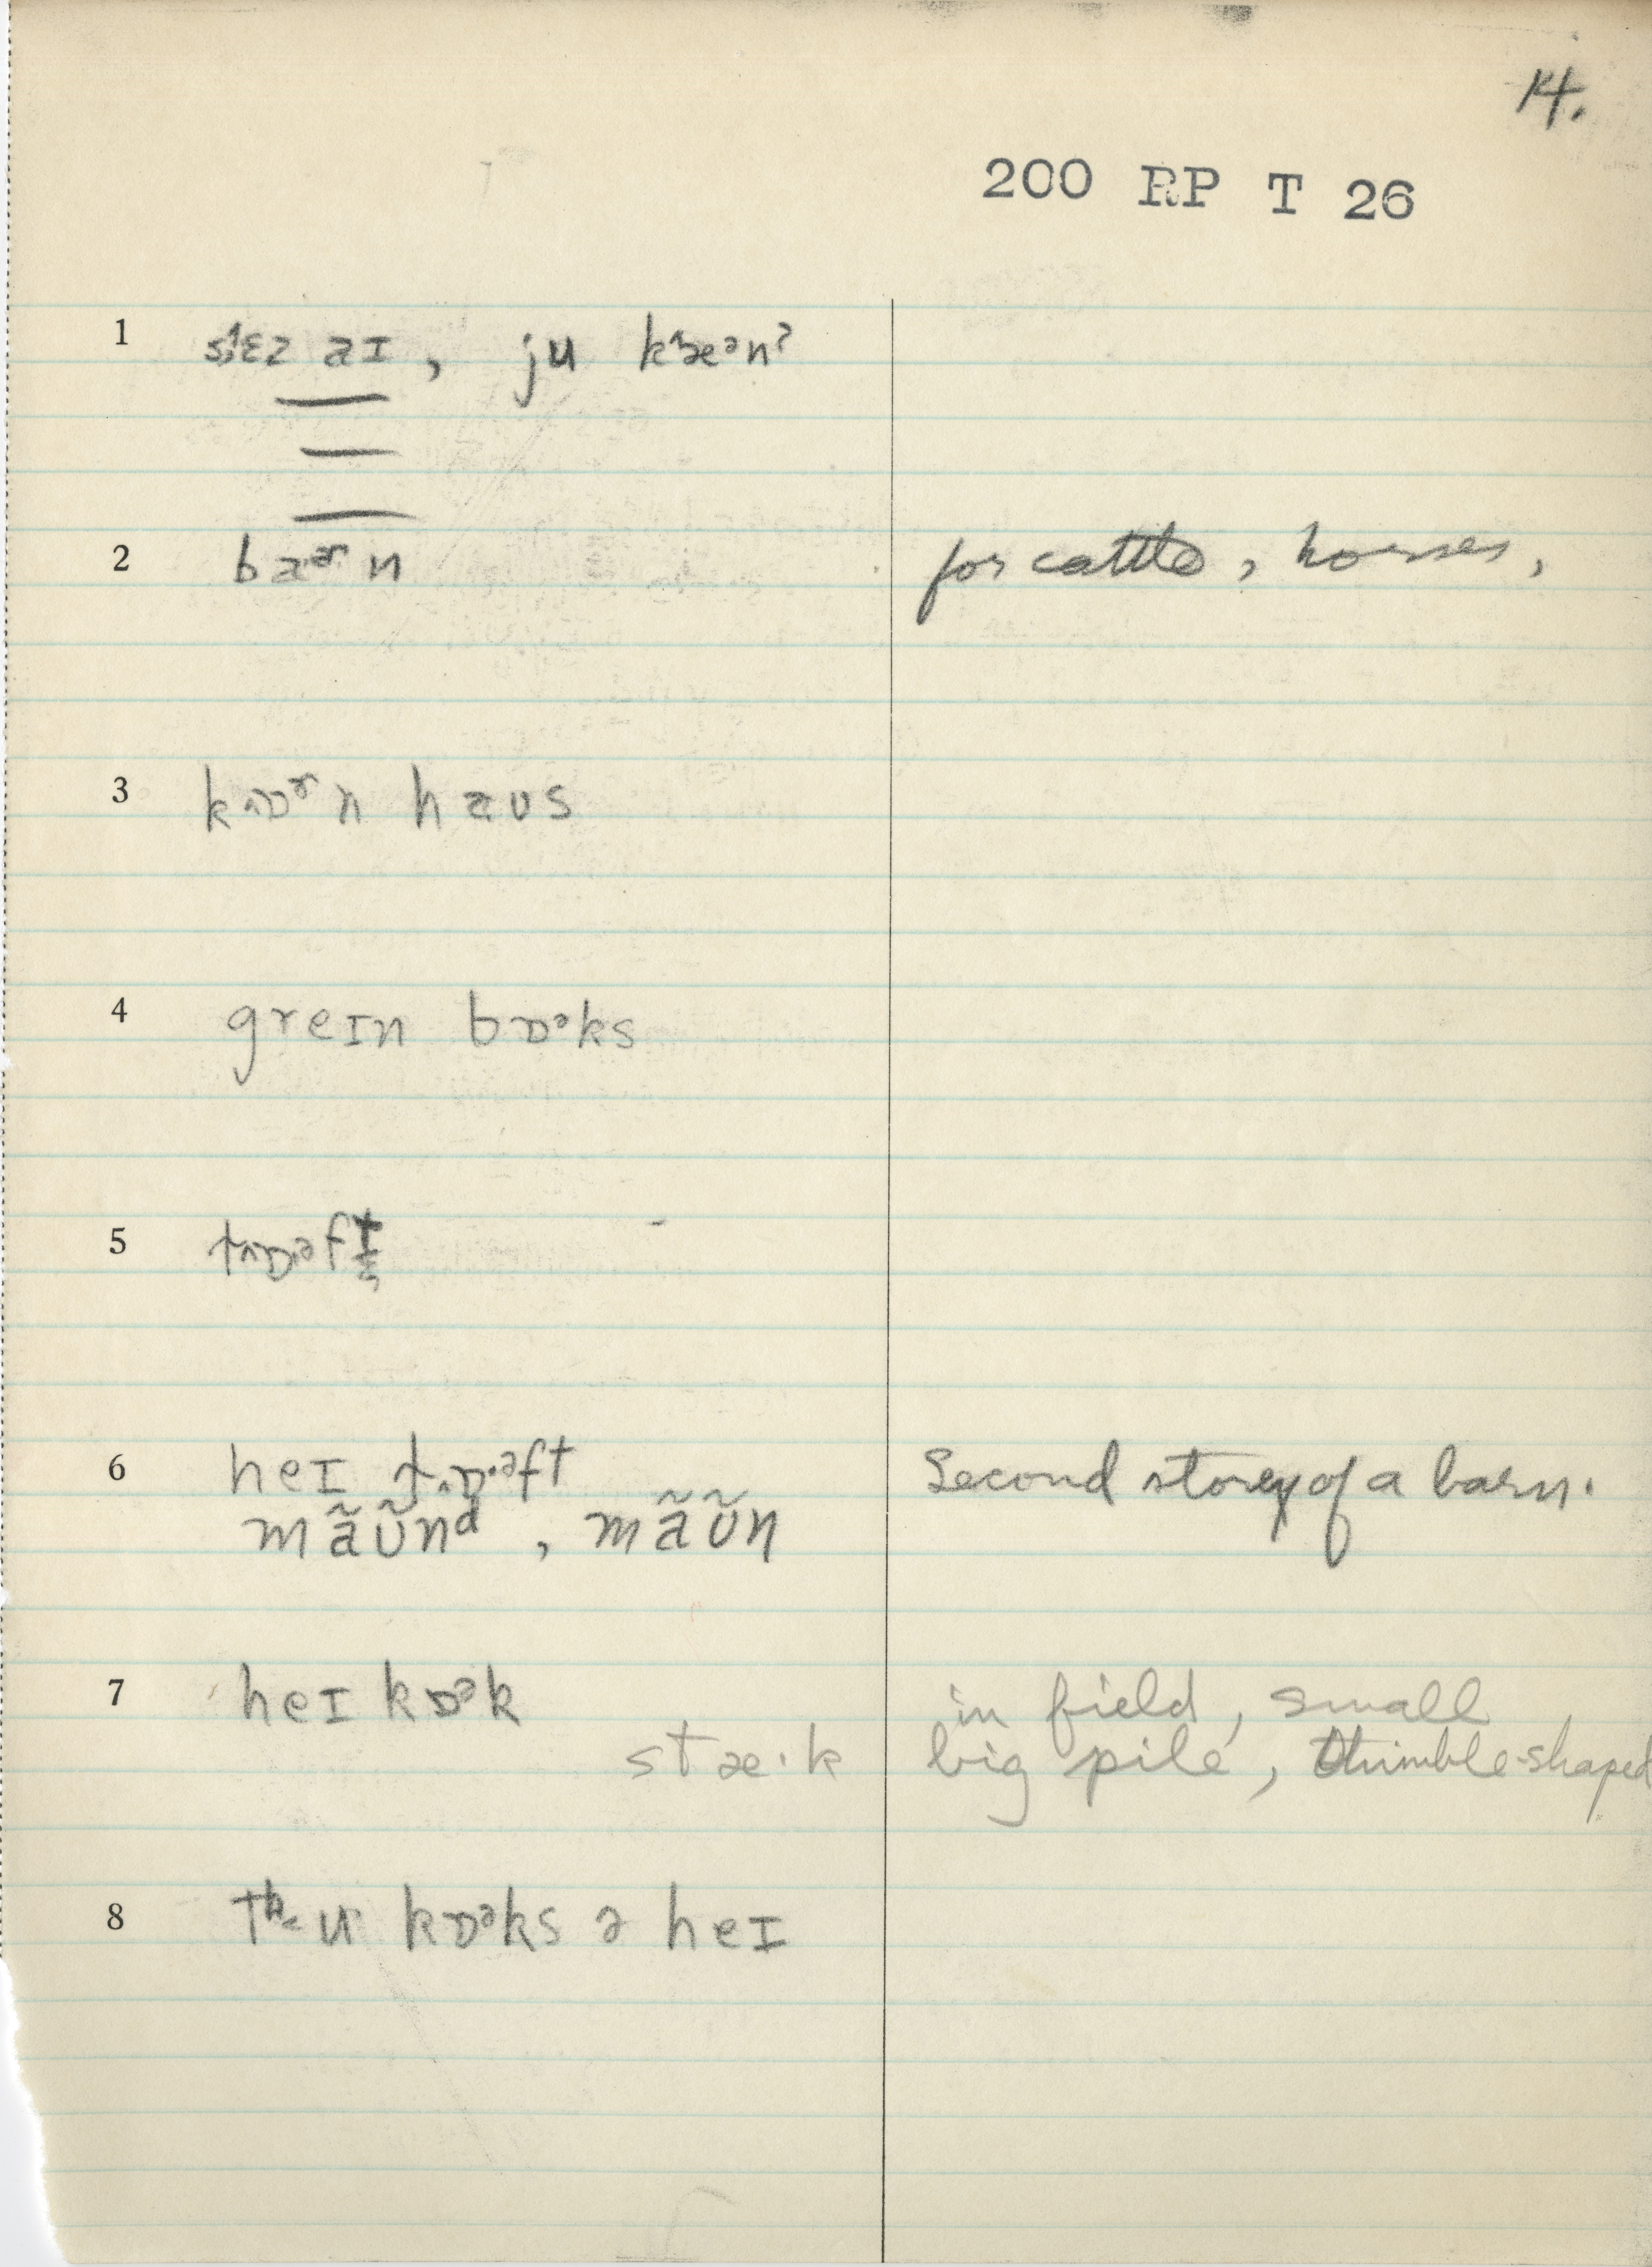 14.
200 RP T 26
1 sɛz aɪ, ju kæən?
2 baɚn for cattle, horses,
3 kɒɚn haus
4 greɪn bɒəks
5
6 heɪ lɒ·əft Second storey of a barn.
mãʊ̃nᵈ, mãʊ̃n
7 heɪ kɒək in field, small
stæ·k big pile, thimble-shaped
8 tʰu kɒəks ə heɪ